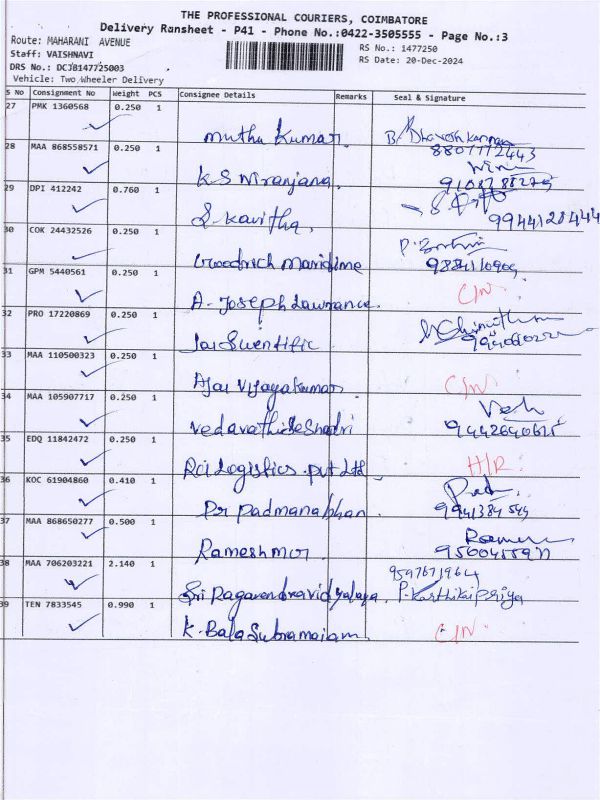 THE PROFESSIONAL COURIERS, COIMBATORE
Delivery Ransheet - P41 - Phone No.:0422-3505555 - Page No.:3
Route: MAHARANI AVENUE
RS No.: 1477250
Staff: VAISHNAVI
RS Date: 20-Dec-2024
DRS No.: DCJ8147725003
Vehicle: Two Wheeler Delivery
S No Consignment No Weight PCS Consignee Details Remarks Seal & Signature
27 PMK 1360568 0.250 1
Muthu Kumar
28 MAA 868558571 0.250 1
K.S Niranjana
29 DPI 412242 0.760 1
S. Kavitha
30 COK 24432526 0.250 1
Woodrich Maridime
31 GPM 5440561 0.250 1
A. Joseph Lawrance. C/N
32 PRO 17220869 0.250 1
Jai Scientific
33 MAA 110500323 0.250 1
Ajai Vijayakumar C/N
34 MAA 105907717 0.250 1
Vedavathi Seshadri
35 EDQ 11842472 0.250 1
Rci Logistics. pvt Ltd H/R
36 KOC 61904860 0.410 1
Pr Padmanabhan
37 MAA 868650277 0.500 1
Rameshmor
38 MAA 706203221 2.140 1
9597671964
Sri Ragavendravidyalaya. P. Karthikaipriya
39 TEN 7833545 0.990 1
K. Bala Subramaiam C/N